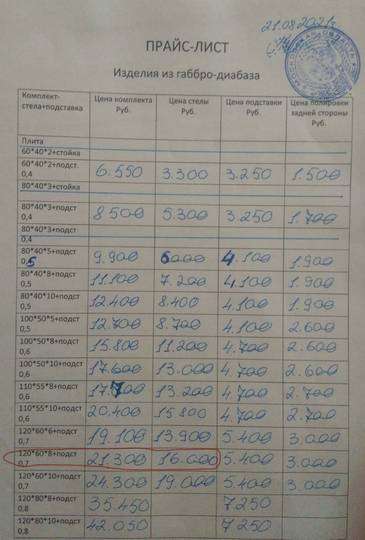 21.08.2021г
ПРАЙС-ЛИСТ
Изделия из габбро-диабаза
Комплект- стела+подставка Цена комплекта Руб. Цена стелы Руб. Цена подставки Руб. Цена полировки задней стороны Руб.
Плита
60*40*2+стойка
60*40*2+подст 0,4 6.550 3.300 3.250 1.500
80*40*3+стойка
80*40*3+подст 0,4 8500 5.300 3.250 1.700
80*40*3+подст 0,4
80*40*5+подст 0,5 9.900 6000 4.100 1.900
80*40*8+подст 0,5 11.100 7.200 4.100 1.900
80*40*10+подст 0,5 12.400 8.400 4.100 1.900
100*50*5+подст 0,5 12.700 8.700 4.100 2.600
100*50*8+подст 0,6 15.800 11.200 4.700 2.600
100*50*10+подст 0,6 17.600 13.000 4.700 2.600
110*55*8+подст 0,6 17.700 13.200 4.700 2.700
110*55*10+подст 0,6 20.400 15.800 4.700 2.700
120*60*6+подст 0,7 19.100 13.900 5.400 3.000
120*60*8+подст 0,7 21.300 16.000 5.400 3.000
120*60*10+подст 0,7 24.300 19.000 5.400 3.000
120*80*8+подст 0,8 35.450 7250
120*80*10+подст 0,8 42.050 7250